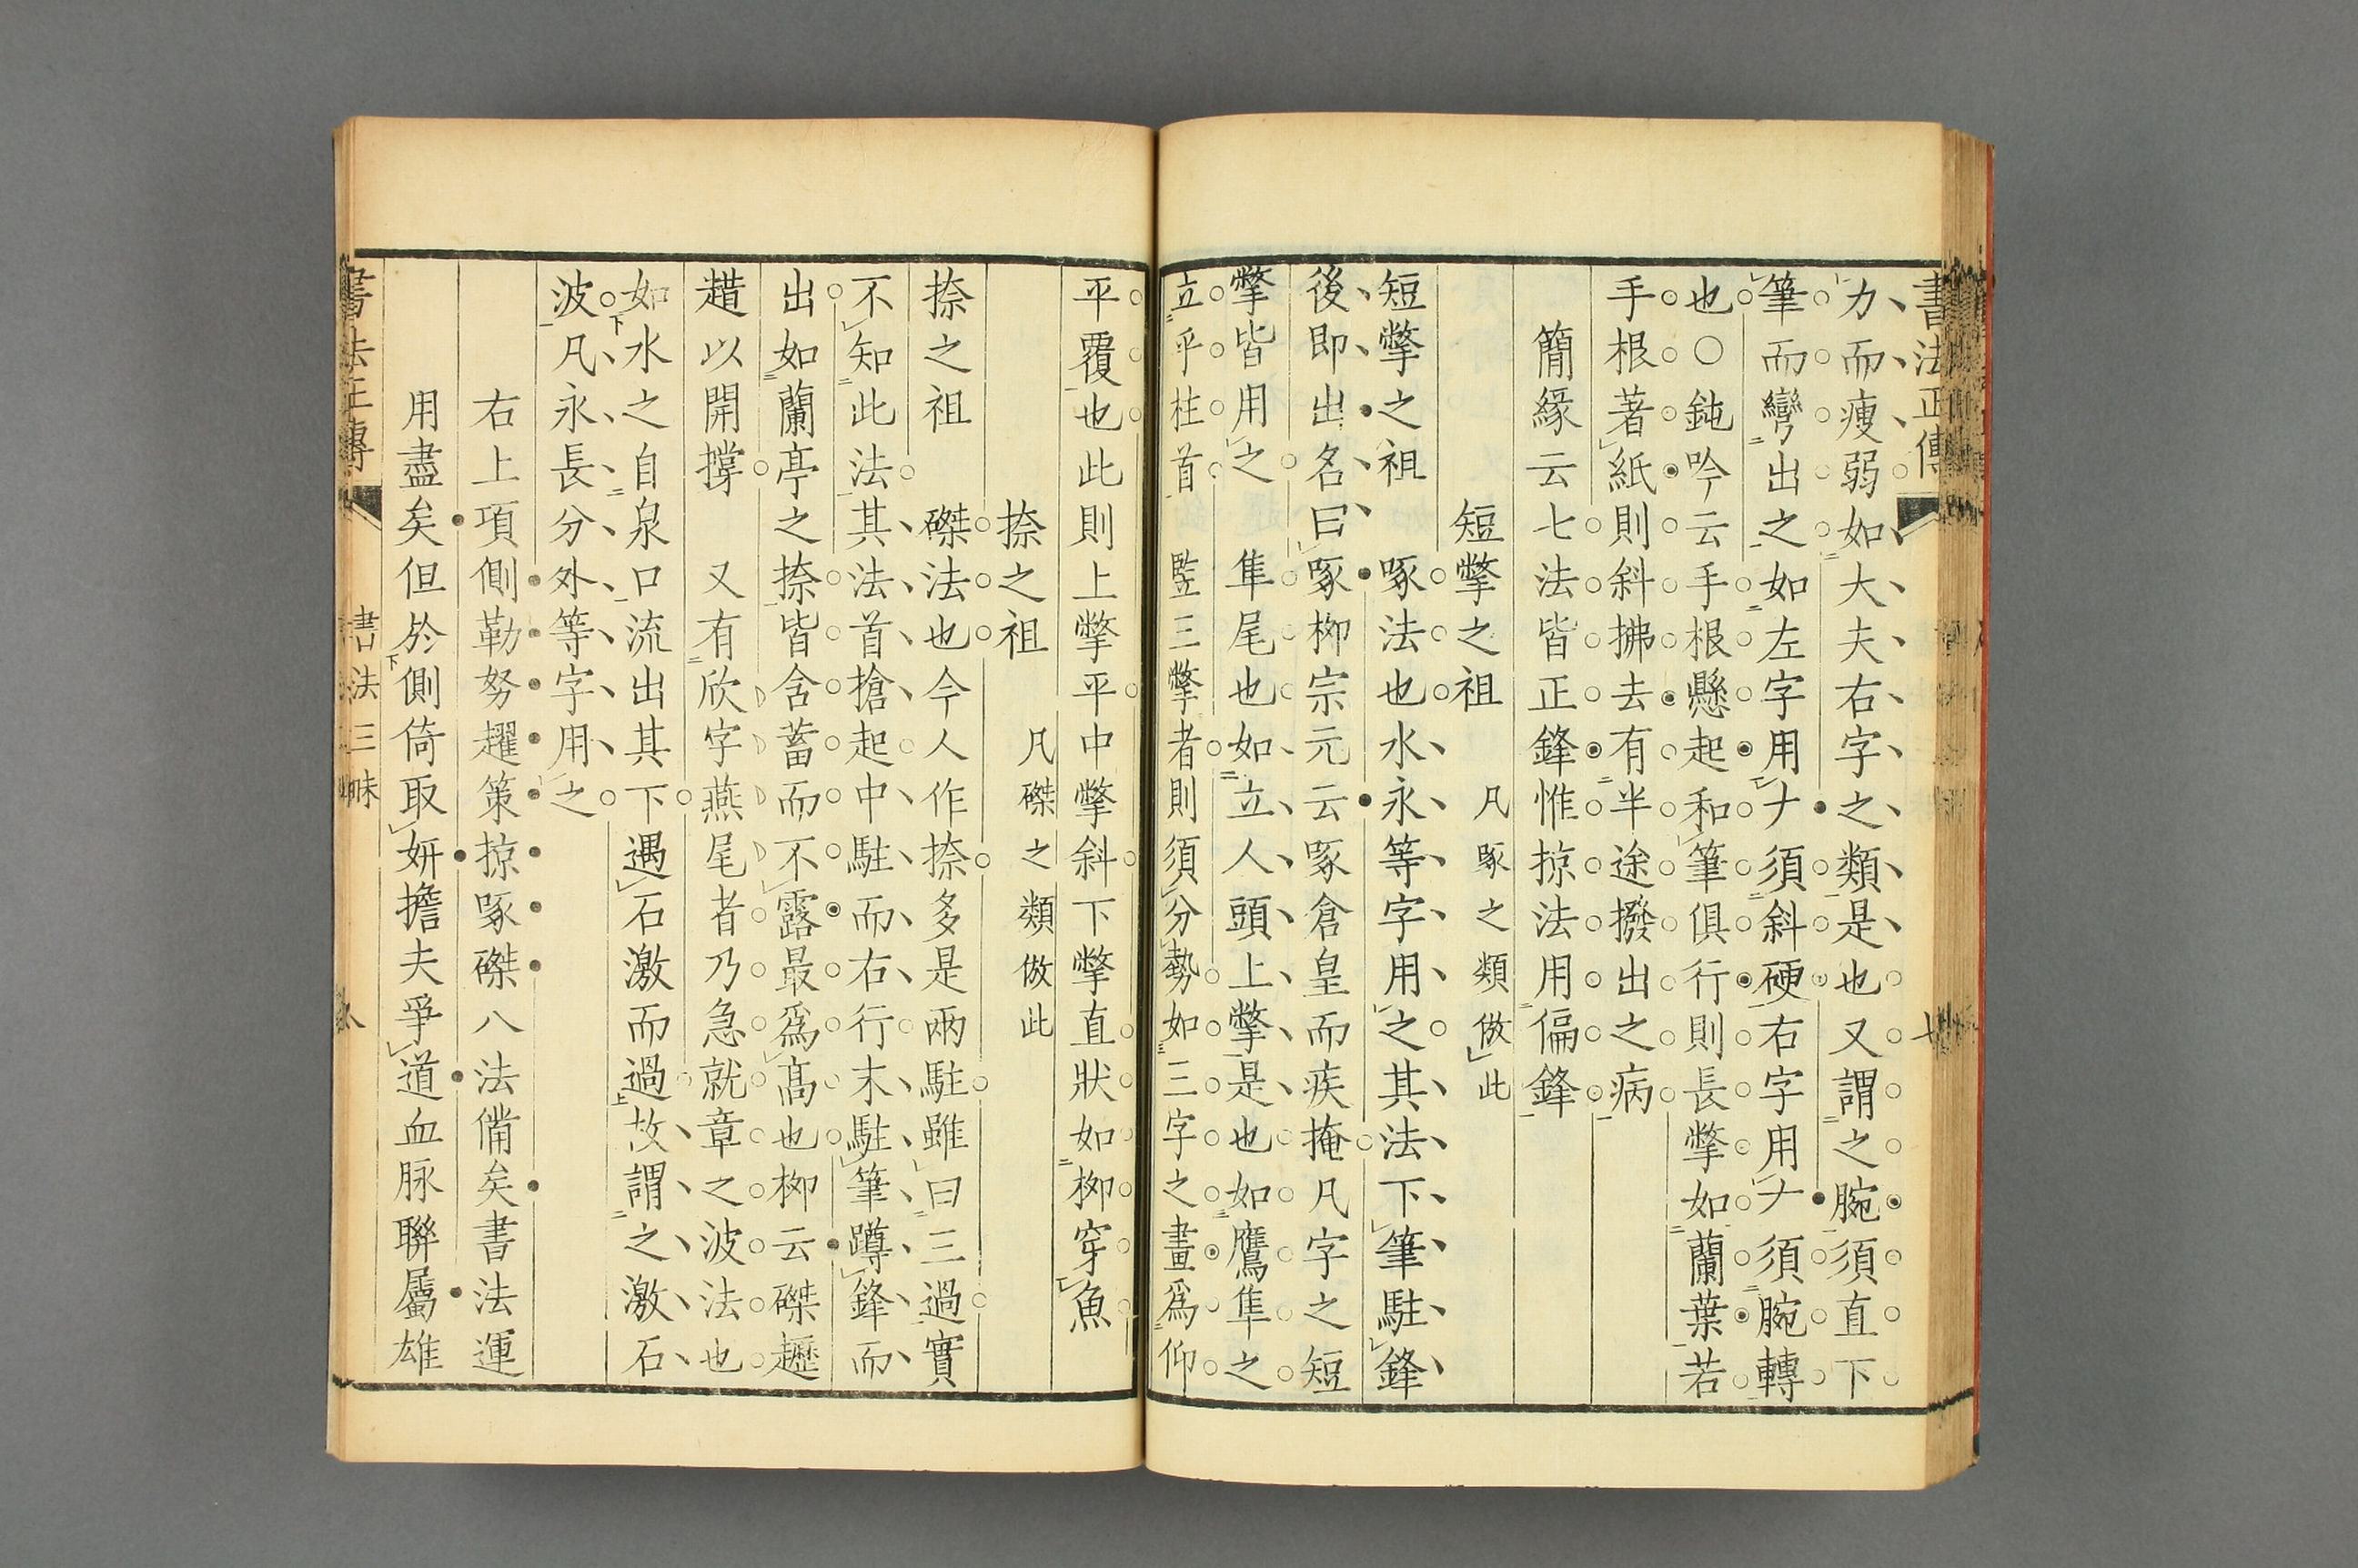 書法正傳
力而瘦弱如大夫右字之類是也又謂之腕須直下
筆而彎出之如左字用𠂇須斜硬右字用𠂇須腕轉
也〇鈍吟云手根懸起和筆俱行則長撆如蘭葉若
手根著紙則斜拂去有半途撥出之病
簡緣云七法皆正鋒惟掠法用偏鋒
短撆之祖 凡啄之類倣此
短撆之祖 啄法也水永等字用之其法下筆駐鋒
後即出名曰啄栁宗元云啄倉皇而疾掩凡字之短
撆皆用之 隼尾也如立人頭上撆是也如鷹隼之
立乎柱首 監三撆者則須分勢如三字之畫爲仰
平覆也此則上撆平中撆斜下撆直狀如栁穿魚
捺之祖 凡磔之類倣此
捺之祖 磔法也今人作捺多是兩駐雖曰三過實
不知此法其法首搶起中駐而右行末駐筆蹲鋒而
出如蘭亭之捺皆含蓄而不露最爲高也栁云磔䟐
趞以開撐 又有欣字燕尾者乃急就章之波法也
如水之自泉口流出其下遇石激而過故謂之激石
波凡永長分外等字用之
右上項側勒努趯策掠啄磔八法備矣書法運
用盡矣但於側倚取妍擔夫爭道血脉聯屬雄
書法正傳 書法三昧 八